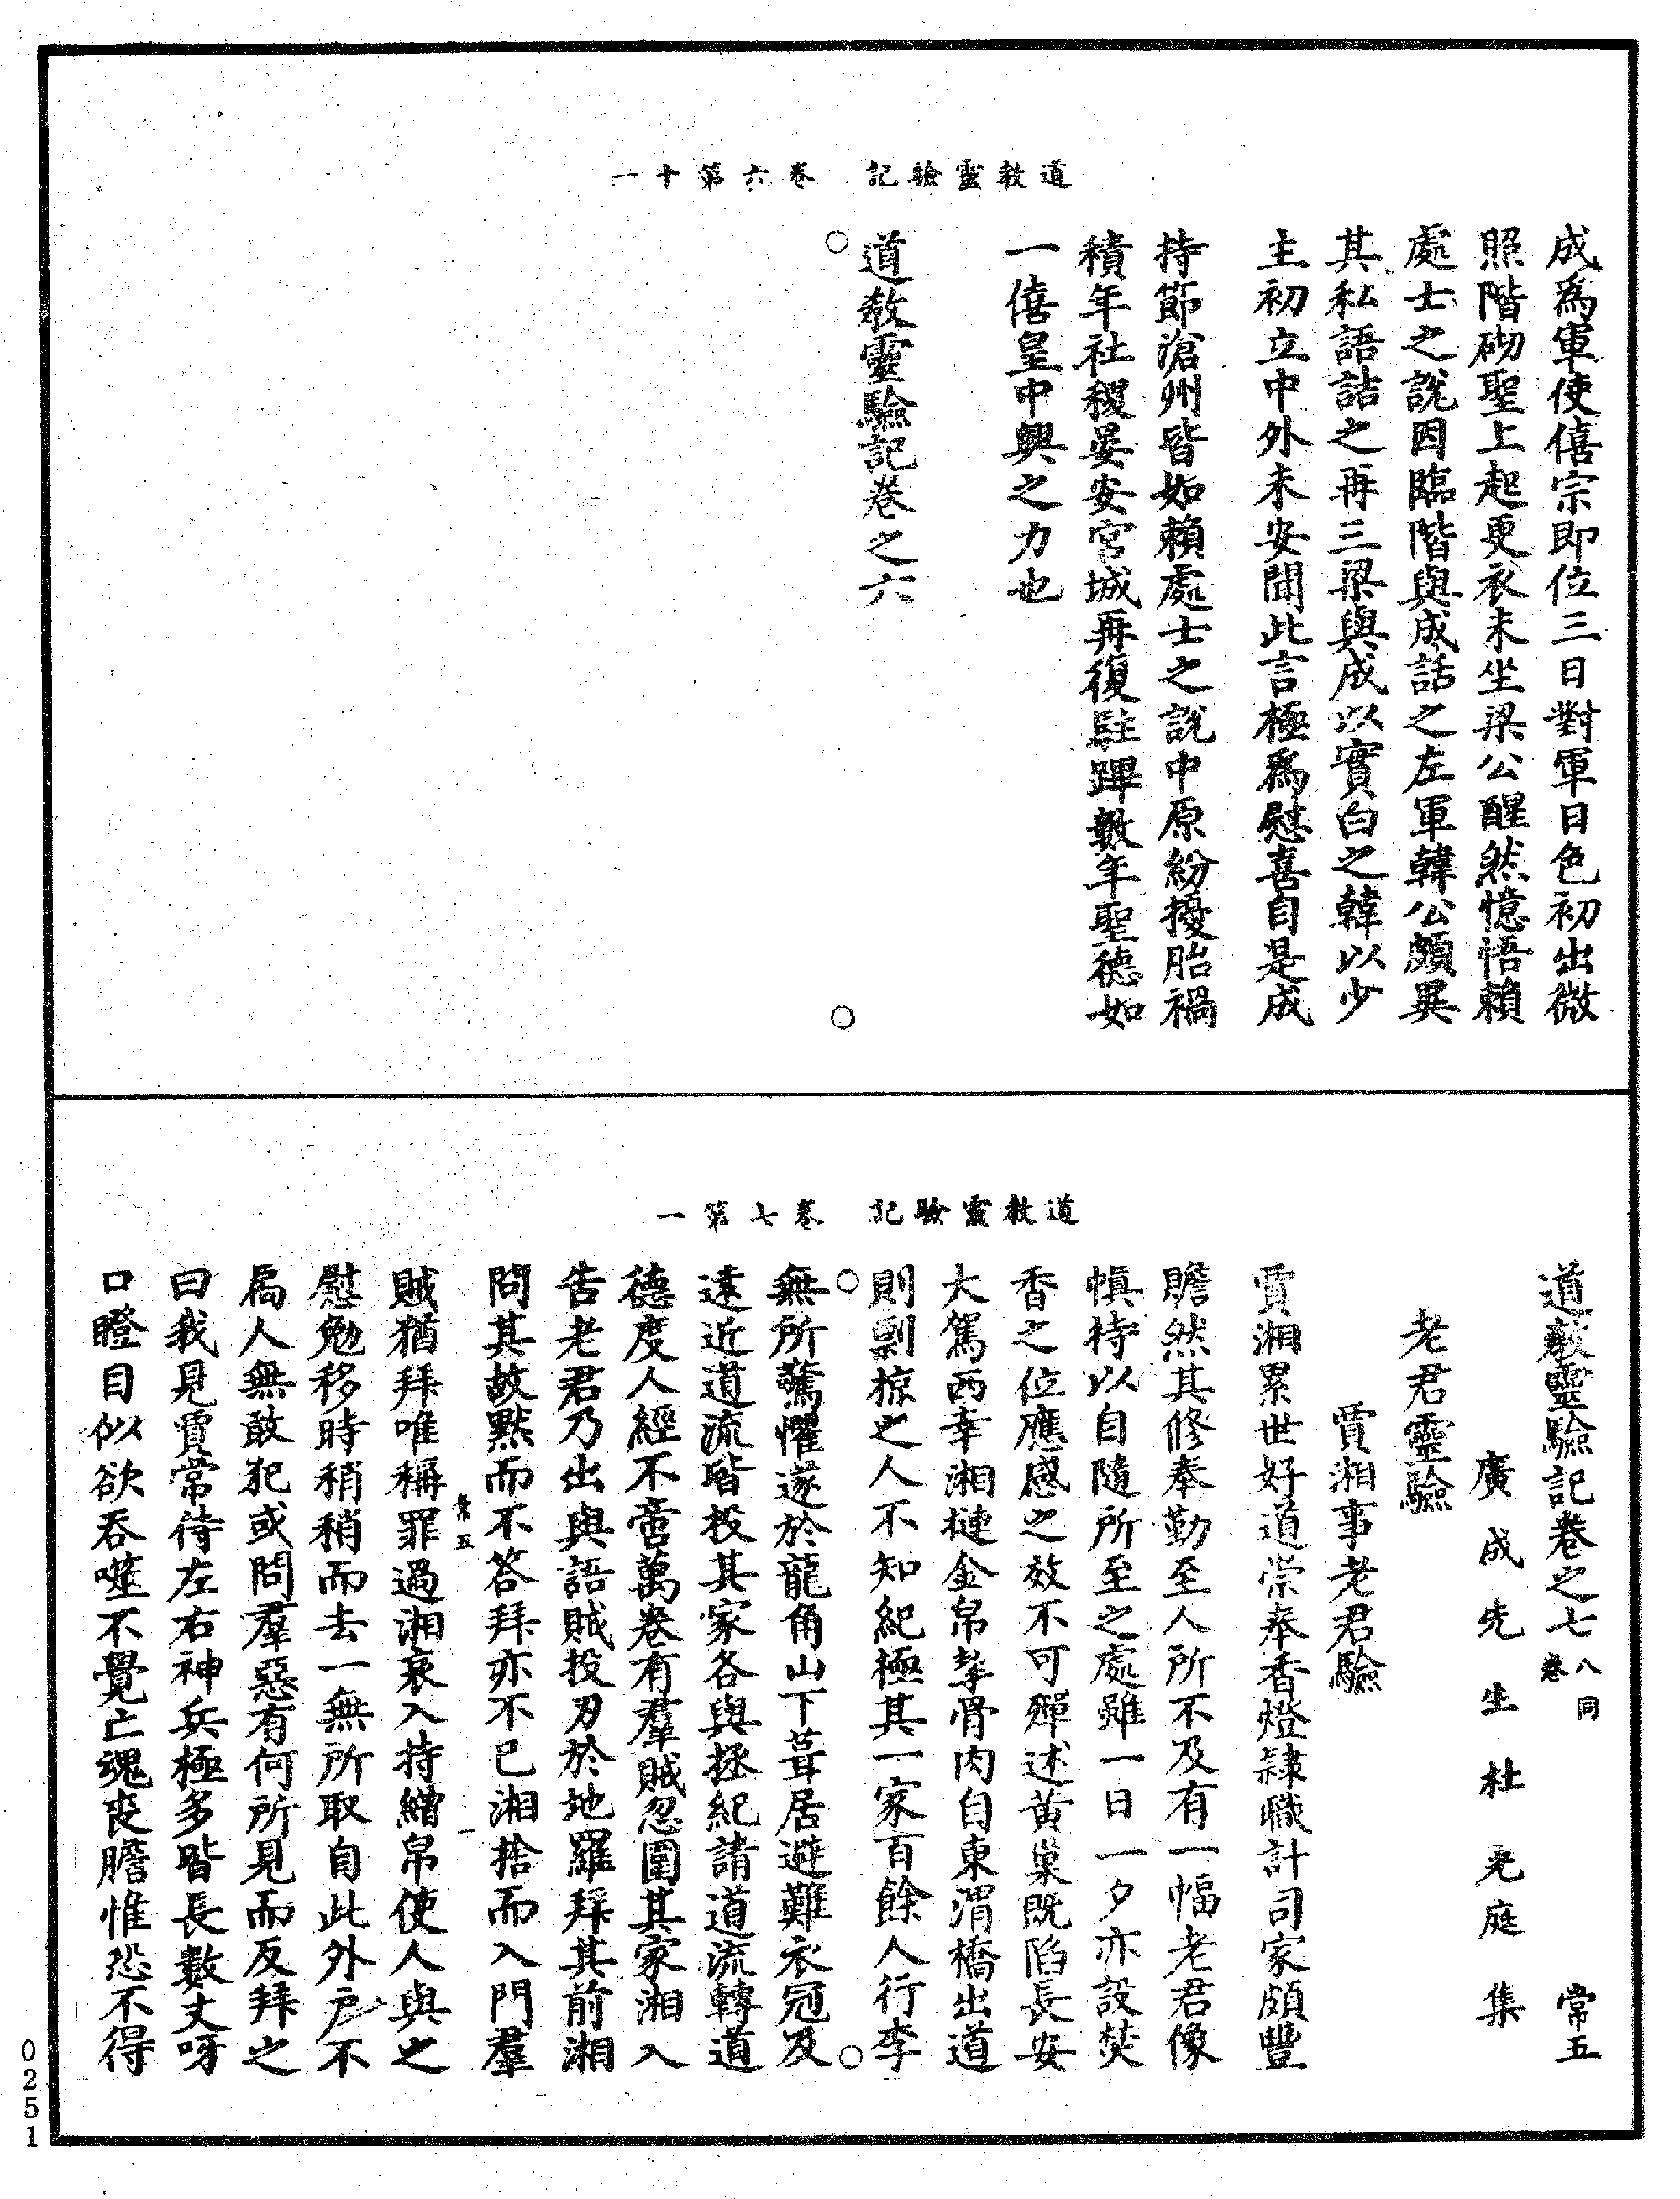 道教靈驗記　卷六第十一
成爲軍使僖宗即位三日對軍日色初出微
照階砌聖上起更衣未坐梁公醒然憶悟賴
處士之説因臨階與成話之左軍韓公頗異
其私語詰之再三梁與成以實白之韓以少
主初立中外未安聞此言極爲慰喜自是成
持節滄州皆如賴處士之説中原紛擾胎禍
積年社稷晏安宮城再復駐蹕數年聖德如
一僖皇中興之力也
道教靈驗記卷之六
道教靈驗記　卷七第一
道教靈驗記卷之七 八同卷 常五
廣成先生杜光庭集
老君靈驗
賈湘事老君驗
賈湘累世好道崇奉香燈隷職計司家頗豐
贍然其修奉勤至人所不及有一幅老君像
慎持以自隨所至之處雖一日一夕亦設焚
香之位應感之效不可殫述黄巢既陷長安
大駕西幸湘槤金帛挈骨肉自東渭橋出道
則剽掠之人不知紀極其一家百餘人行李
無所驚懼遂於龍角山下葺居避難衣冠及
遠近道流皆投其家各與拯紀請道流轉道
德度人經不啻萬卷有羣賊忽圍其家湘入
告老君乃出與語賊投刃於地羅拜其前湘
問其故黙而不答拜亦不已湘捨而入門羣
賊猶拜唯稱罪過湘哀入持繒帛使人與之
常五　一
慰勉移時稍稍而去一無所取自此外户不
扃人無敢犯或問羣惡有何所見而反拜之
曰我見賈常侍左右神兵極多皆長數丈呀
口瞪目似欲吞噬不覺亡魂喪膽惟恐不得
0251